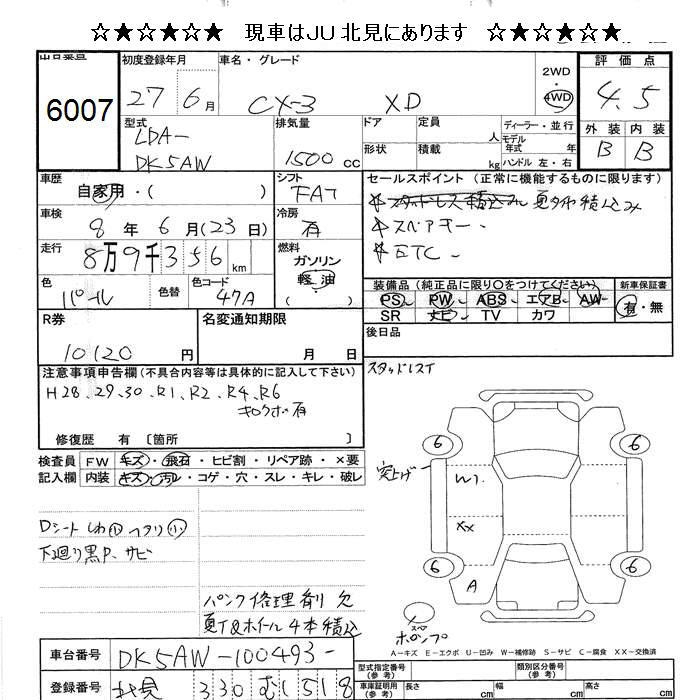 ☆★☆★☆★☆ 現車はJU北見にあります ☆★☆★☆★☆
初度登録年月 車名・グレード 評価点
6007 27 6月 CX-3 XD 2WD 4WD 4.5
型式 排気量 ドア 定員 人 ディーラー・並行 外装 内装
LDA- 形状 積載 kg モデル年式 年 B B
DK5AW 1500cc ハンドル 左・右
車歴 シフト セールスポイント (正常に機能するものに限ります)
自家用・( ) FAT スタッドレス積込み 夏タイヤ積込み
車検 冷房 スペアキー
8年 6月(23日) 有 ETC
走行 燃料
8万9千356km ガソリン
軽油
( )
色 色替 色コード 装備品 (純正品に限り○をつけてください) 新車保証書
パール 47A PS PW ABS エアB AW 有・無
SR ナビ TV カワ
R券 名変通知期限 後日品
10120円 月 日
注意事項申告欄(不具合内容等は具体的に記入して下さい) スタッドレス
H28、29、30、R1、R2、R4、R6
キロクボ有
修復歴 有 〔箇所 〕
検査員 FW キズ・飛石・ヒビ割・リペア跡・×要
記入欄 内装 キズ・汚レ・コゲ・穴・スレ・キレ・破レ
6 6
突上げ W1
XX
Dシートしわ小 ヘタリ小
下廻り黒P、サビ
6 6
A
パンク修理剤欠
夏T&ホイール4本積込
スペア
ポンプ
A-キズ E-エクボ U-凹み W-補修跡 S-サビ C-腐食 XX-交換済
車台番号 DK5AW-100493-
型式指定番号(参考) 類別区分番号(参考)
登録番号 北見 330 む 1518
車庫証明用(参考) 長さ cm 幅 cm 高さ cm